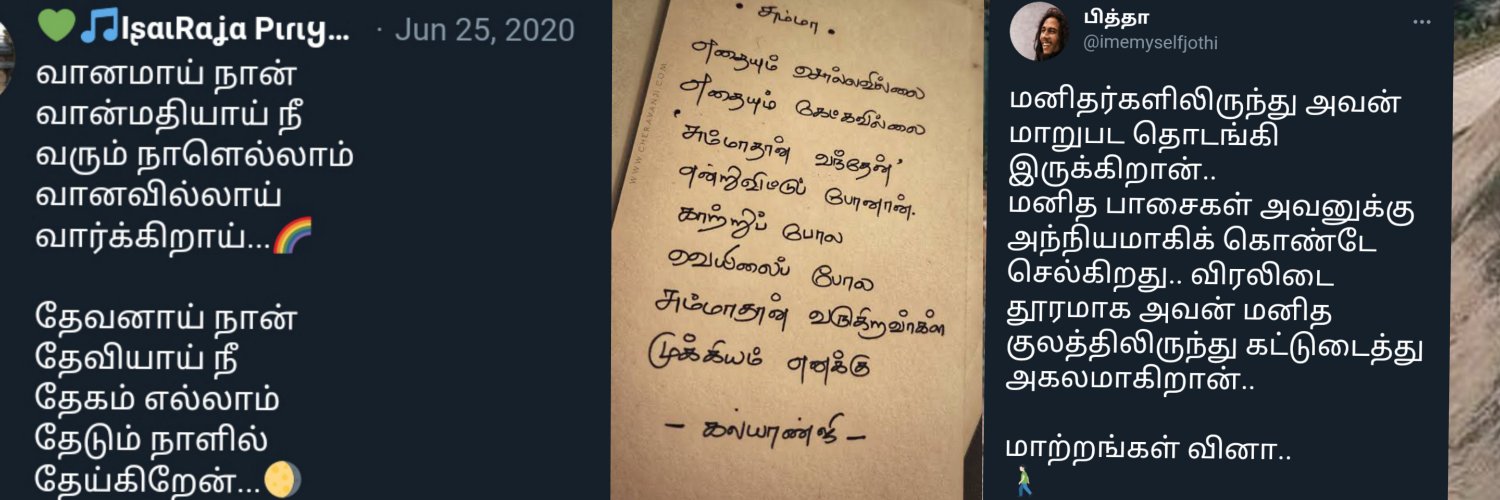 💚🎵IʂαιRαʝα Pιrιყ... · Jun 25, 2020
வானமாய் நான்
வான்மதியாய் நீ
வரும் நாளெல்லாம்
வானவில்லாய்
வார்க்கிறாய்...🌈
தேவனாய் நான்
தேவியாய் நீ
தேகம் எல்லாம்
தேடும் நாளில்
தேய்கிறேன்...🌖
• சும்மா •
எதையும் சொல்லவில்லை
எதையும் கேட்கவில்லை
'சும்மாதான் வந்தேன்'
என்றுவிட்டுப் போனான்.
காற்றுப் போல
வெயிலைப் போல
சும்மாதான் வருகிறவர்கள்
முக்கியம் எனக்கு
- கல்யாண்ஜி -
WWW.CHERAVANJI.COM
பித்தா
@imemyselfjothi
மனிதர்களிலிருந்து அவன்
மாறுபட தொடங்கி
இருக்கிறான்..
மனித பாசைகள் அவனுக்கு
அந்நியமாகிக் கொண்டே
செல்கிறது.. விரலிடை
தூரமாக அவன் மனித
குலத்திலிருந்து கட்டுடைத்து
அகலமாகிறான்..
மாற்றங்கள் வினா..
🚶